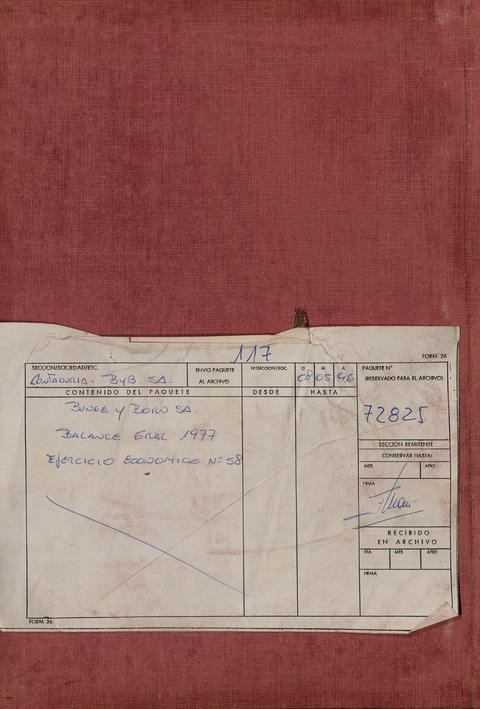 117
FORM. 26
SECCION/SOCIEDAD/ETC.
CONTADURIA - ByB SA.
ENVIO PAQUETE
AL ARCHIVO
D M A
08 05 96
PAQUETE Nº
(RESERVADO PARA EL ARCHIVO)
72825
CONTENIDO DEL PAQUETE
DESDE
HASTA
BUNGE Y BORN SA
BALANCE GRAL 1977
EJERCICIO ECONOMICO Nº 58
SECCION REMITENTE
CONSERVAR HASTA:
MES
AÑO
FIRMA
RECIBIDO
EN ARCHIVO
DIA
MES
AÑO
FIRMA
FORM. 26